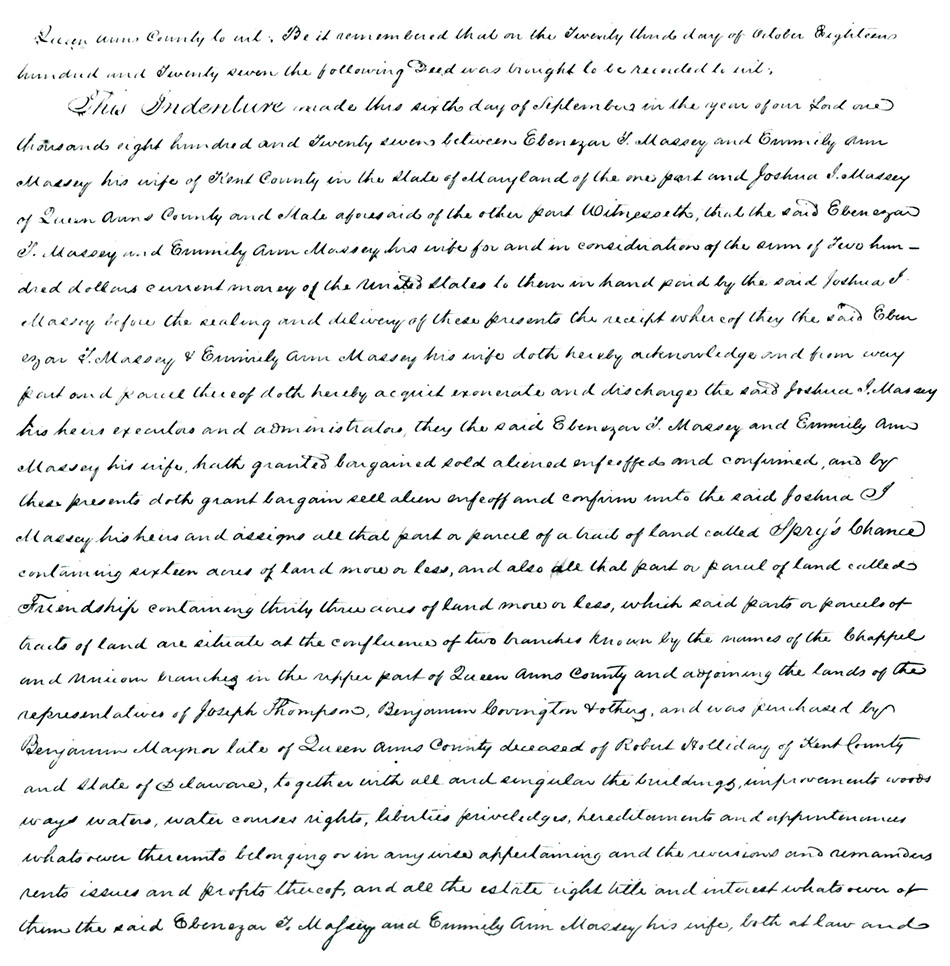 Queen Anns County to wit: Be it remembered that on the Twenty third day of October Eighteen
hundred and Twenty seven the following Deed was brought to be recorded to wit:
This Indenture made this sixth day of September in the year of our Lord one
thousand eight hundred and Twenty seven between Ebenezar T. Massey and Emmily Ann
Massey his wife of Kent County in the State of Maryland of the one part and Joshua I. Massey
of Queen Anns County and State aforesaid of the other part Witnesseth, that the said Ebenezar
T. Massey and Emmily Ann Massey his wife for and in consideration of the sum of Two hun-
dred dollars current money of the United States to them in hand paid by the said Joshua I.
Massey before the sealing and delivery of these presents the receipt whereof they the said Eben
ezar T. Massey & Emmily Ann Massey his wife doth hereby acknowledge and from every
part and parcel thereof doth hereby acquit exonerate and discharge the said Joshua I. Massey
his heirs executors and administrators, they the said Ebenezar T. Massey and Emmily Ann
Massey his wife, hath granted bargained sold aliened enfeoffed and confirmed, and by
these presents doth grant bargain sell alien enfeoff and confirm unto the said Joshua I
Massey his heirs and assigns all that part or parcel of a tract of land called Spry's Chance
containing sixteen acres of land more or less, and also all that part or parcel of land called
Friendship containing thirty three acres of land more or less, which said parts or parcels of
tracts of land are situate at the confluence of two branches known by the names of the Chappel
and Unicorn branches in the upper part of Queen Anns County and adjoining the lands of the
representatives of Joseph Thompson, Benjamin Covington & others, and was purchased by
Benjamin Maynor late of Queen Anns County deceased of Robert Holliday of Kent County
and State of Delaware, together with all and singular the buildings, improvements woods
ways waters, water courses rights, liberties priveledges, hereditaments and appurtenances
whatsoever thereunto belonging or in any wise appertaining and the reversions and remainders
rents issues and profits thereof, and all the estate right title and interest whatsoever of
them the said Ebenezar T. Massey and Emmily Ann Massey his wife, both at law and